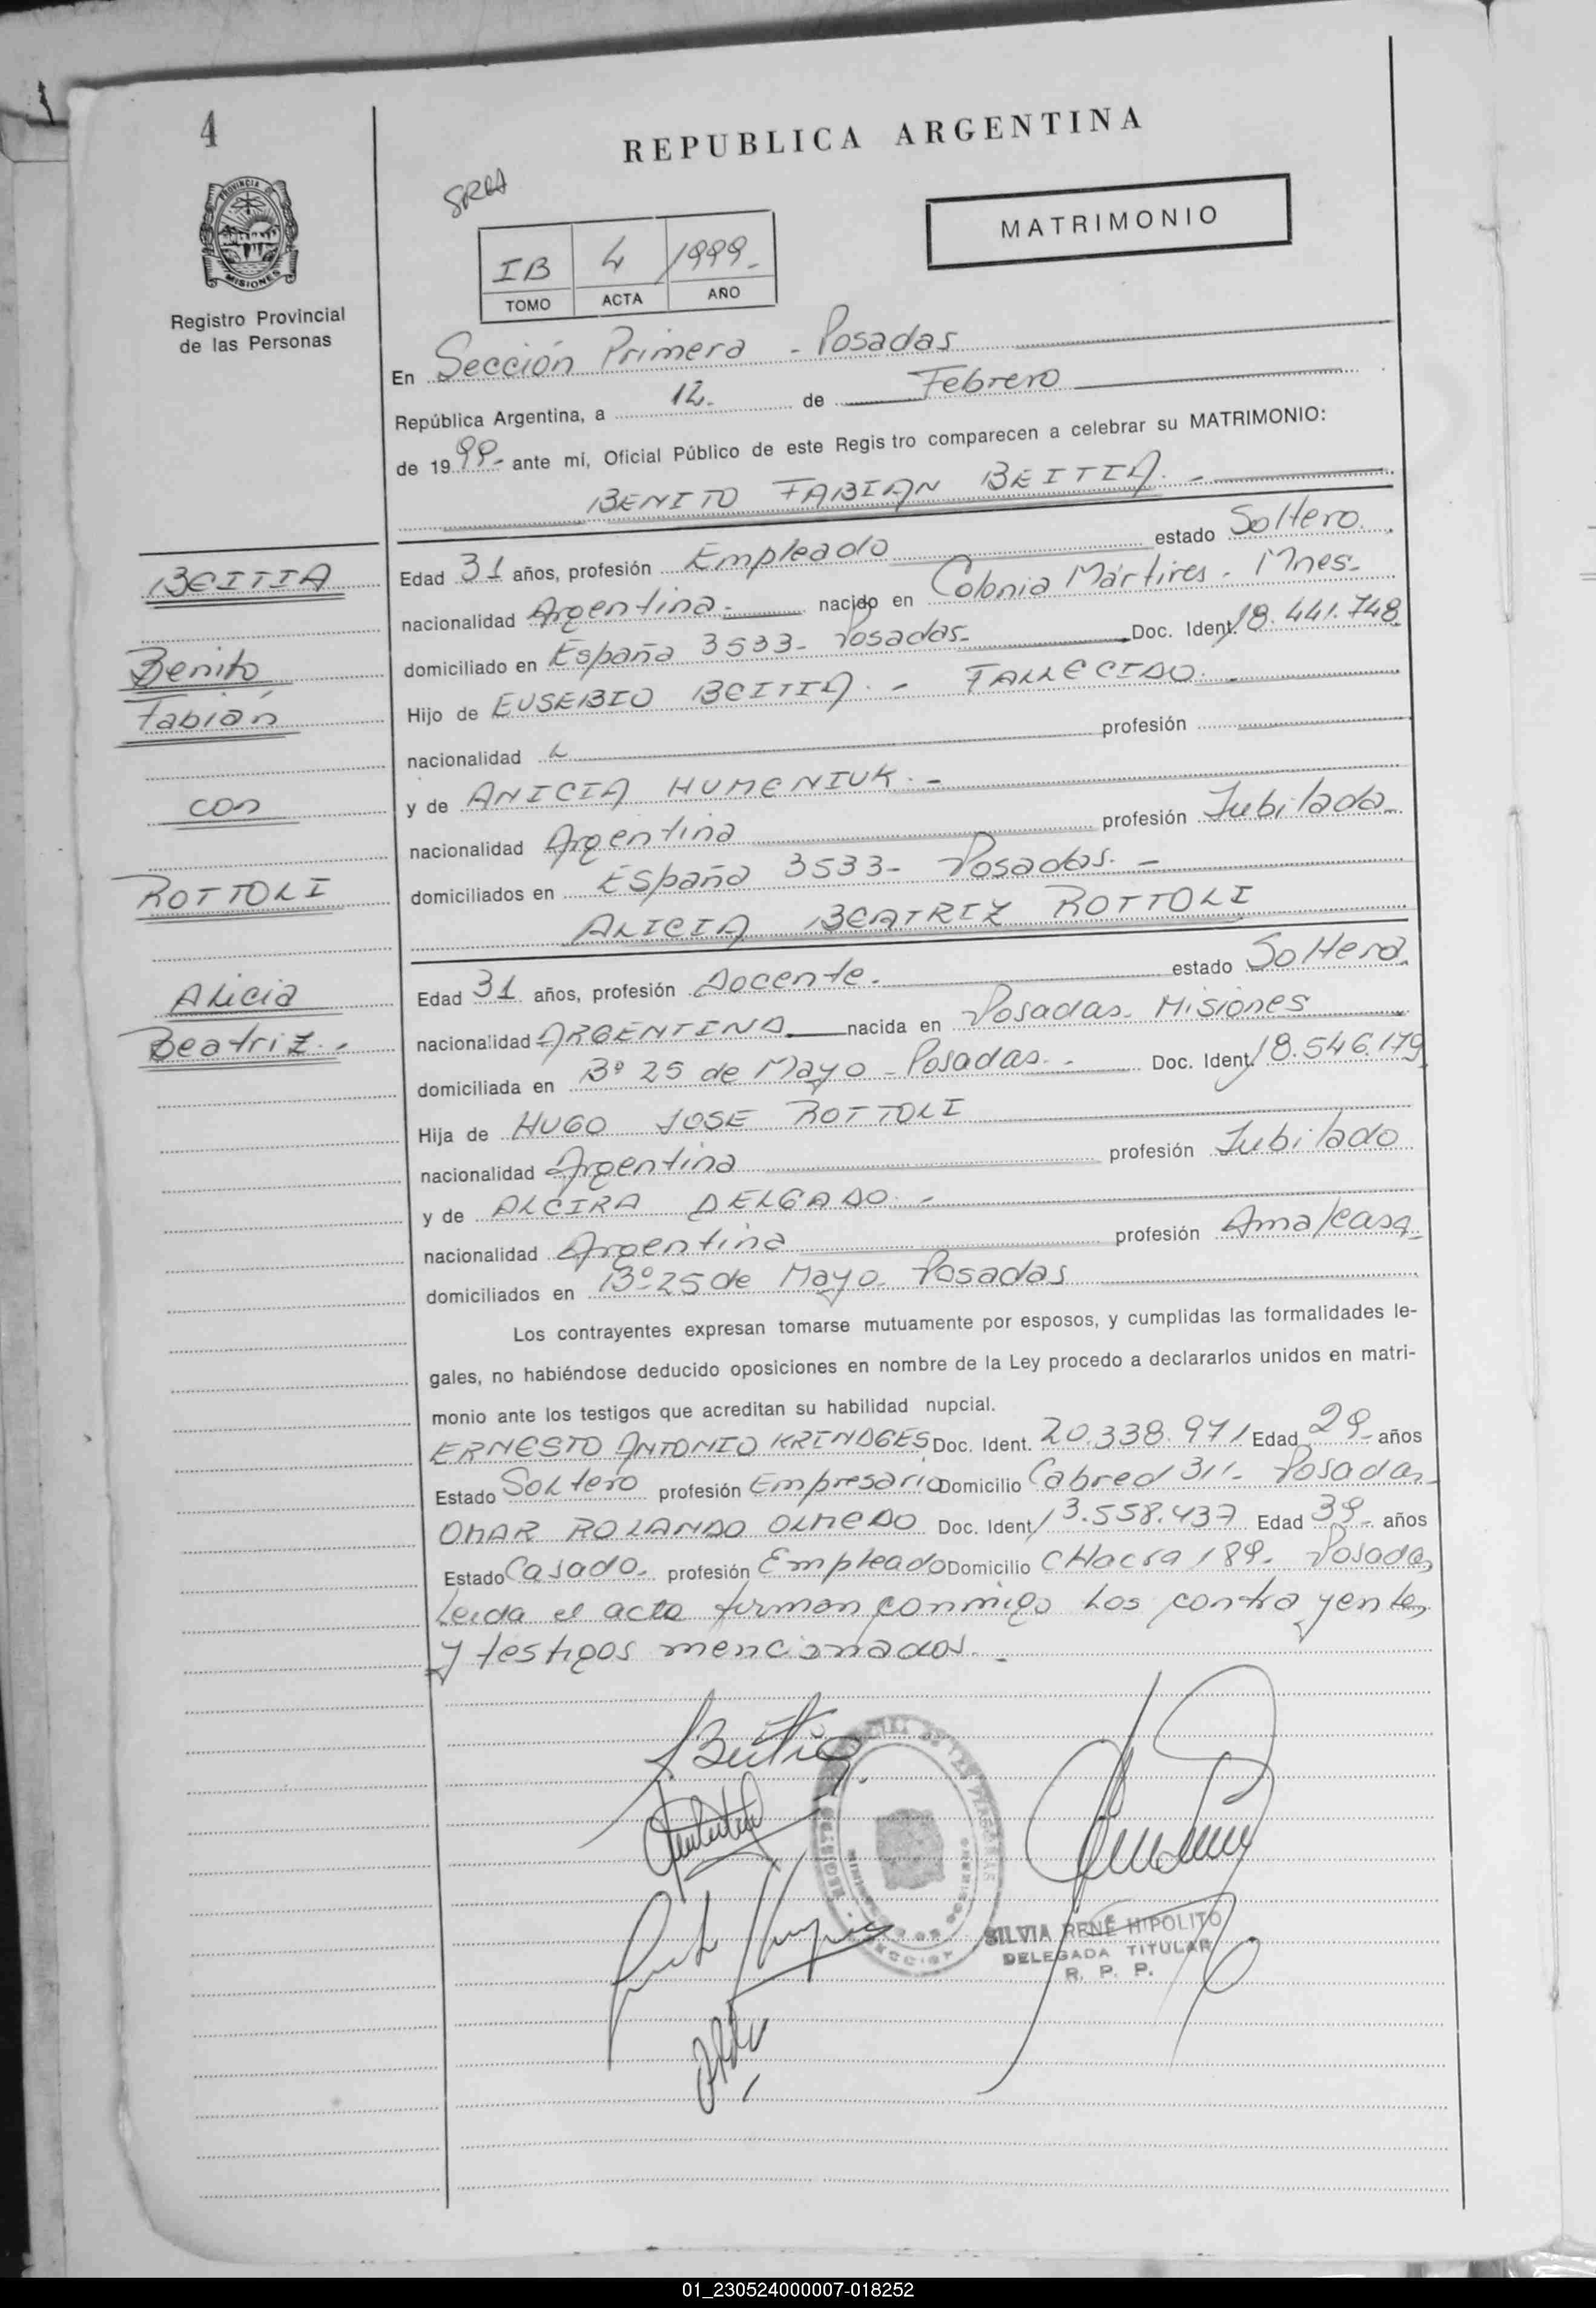 4
REPUBLICA ARGENTINA
PROVINCIA DE
MISIONES
Registro Provincial
de las Personas
MATRIMONIO
IB 4 1999-
TOMO ACTA AÑO
En Sección Primera - Posadas
República Argentina, a 12- de Febrero
de 1999- ante mi, Oficial Público de este Regis tro comparecen a celebrar su MATRIMONIO:
BENITO FABIAN BEITIA. -
BEITIA
Benito
Fabián
con
ROTTOLI
Alicia
Beatriz.-
Edad 31 años, profesión Empleado estado Soltero
nacionalidad Argentina- nacido en Colonia Mártires - Mnes-
domiciliado en España 3533- Posadas- Doc. Ident. 18.441.748
Hijo de EUSEBIO BEITIA. - FALLECIDO. -
nacionalidad profesión
y de ANICIA HUMENIUK. -
nacionalidad Argentina profesión Jubilada
domiciliados en España 3533- Posadas. -
ALICIA BEATRIZ ROTTOLI
Edad 31 años, profesión Docente. estado Soltera
nacionalidad ARGENTINA nacida en Posadas- Misiones
domiciliada en Bº 25 de Mayo - Posadas. - Doc. Ident. 18.546.179
Hija de HUGO JOSE ROTTOLI
nacionalidad Argentina profesión Jubilado
y de ALCIRA DELGADO. -
nacionalidad Argentina profesión Ama/casa
domiciliados en Bº 25 de Mayo- Posadas
Los contrayentes expresan tomarse mutuamente por esposos, y cumplidas las formalidades le-
gales, no habiéndose deducido oposiciones en nombre de la Ley procedo a declararlos unidos en matri-
monio ante los testigos que acreditan su habilidad nupcial.
ERNESTO ANTONIO KRINDGES Doc. Ident. 20.338.971 Edad 29- años
Estado Soltero profesión Empresario Domicilio Cabred 311- Posadas-
OMAR ROLANDO OLMEDO Doc. Ident. 13.558.437 Edad 39- años
Estado Casado- profesión Empleado Domicilio CHacra 189- Posadas
Leida el acta firman conmigo Los contrayentes
y testigos mencionados. -
SILVIA RENÉ HIPOLITO
DELEGADA TITULAR
R. P. P.
01_230524000007-018252